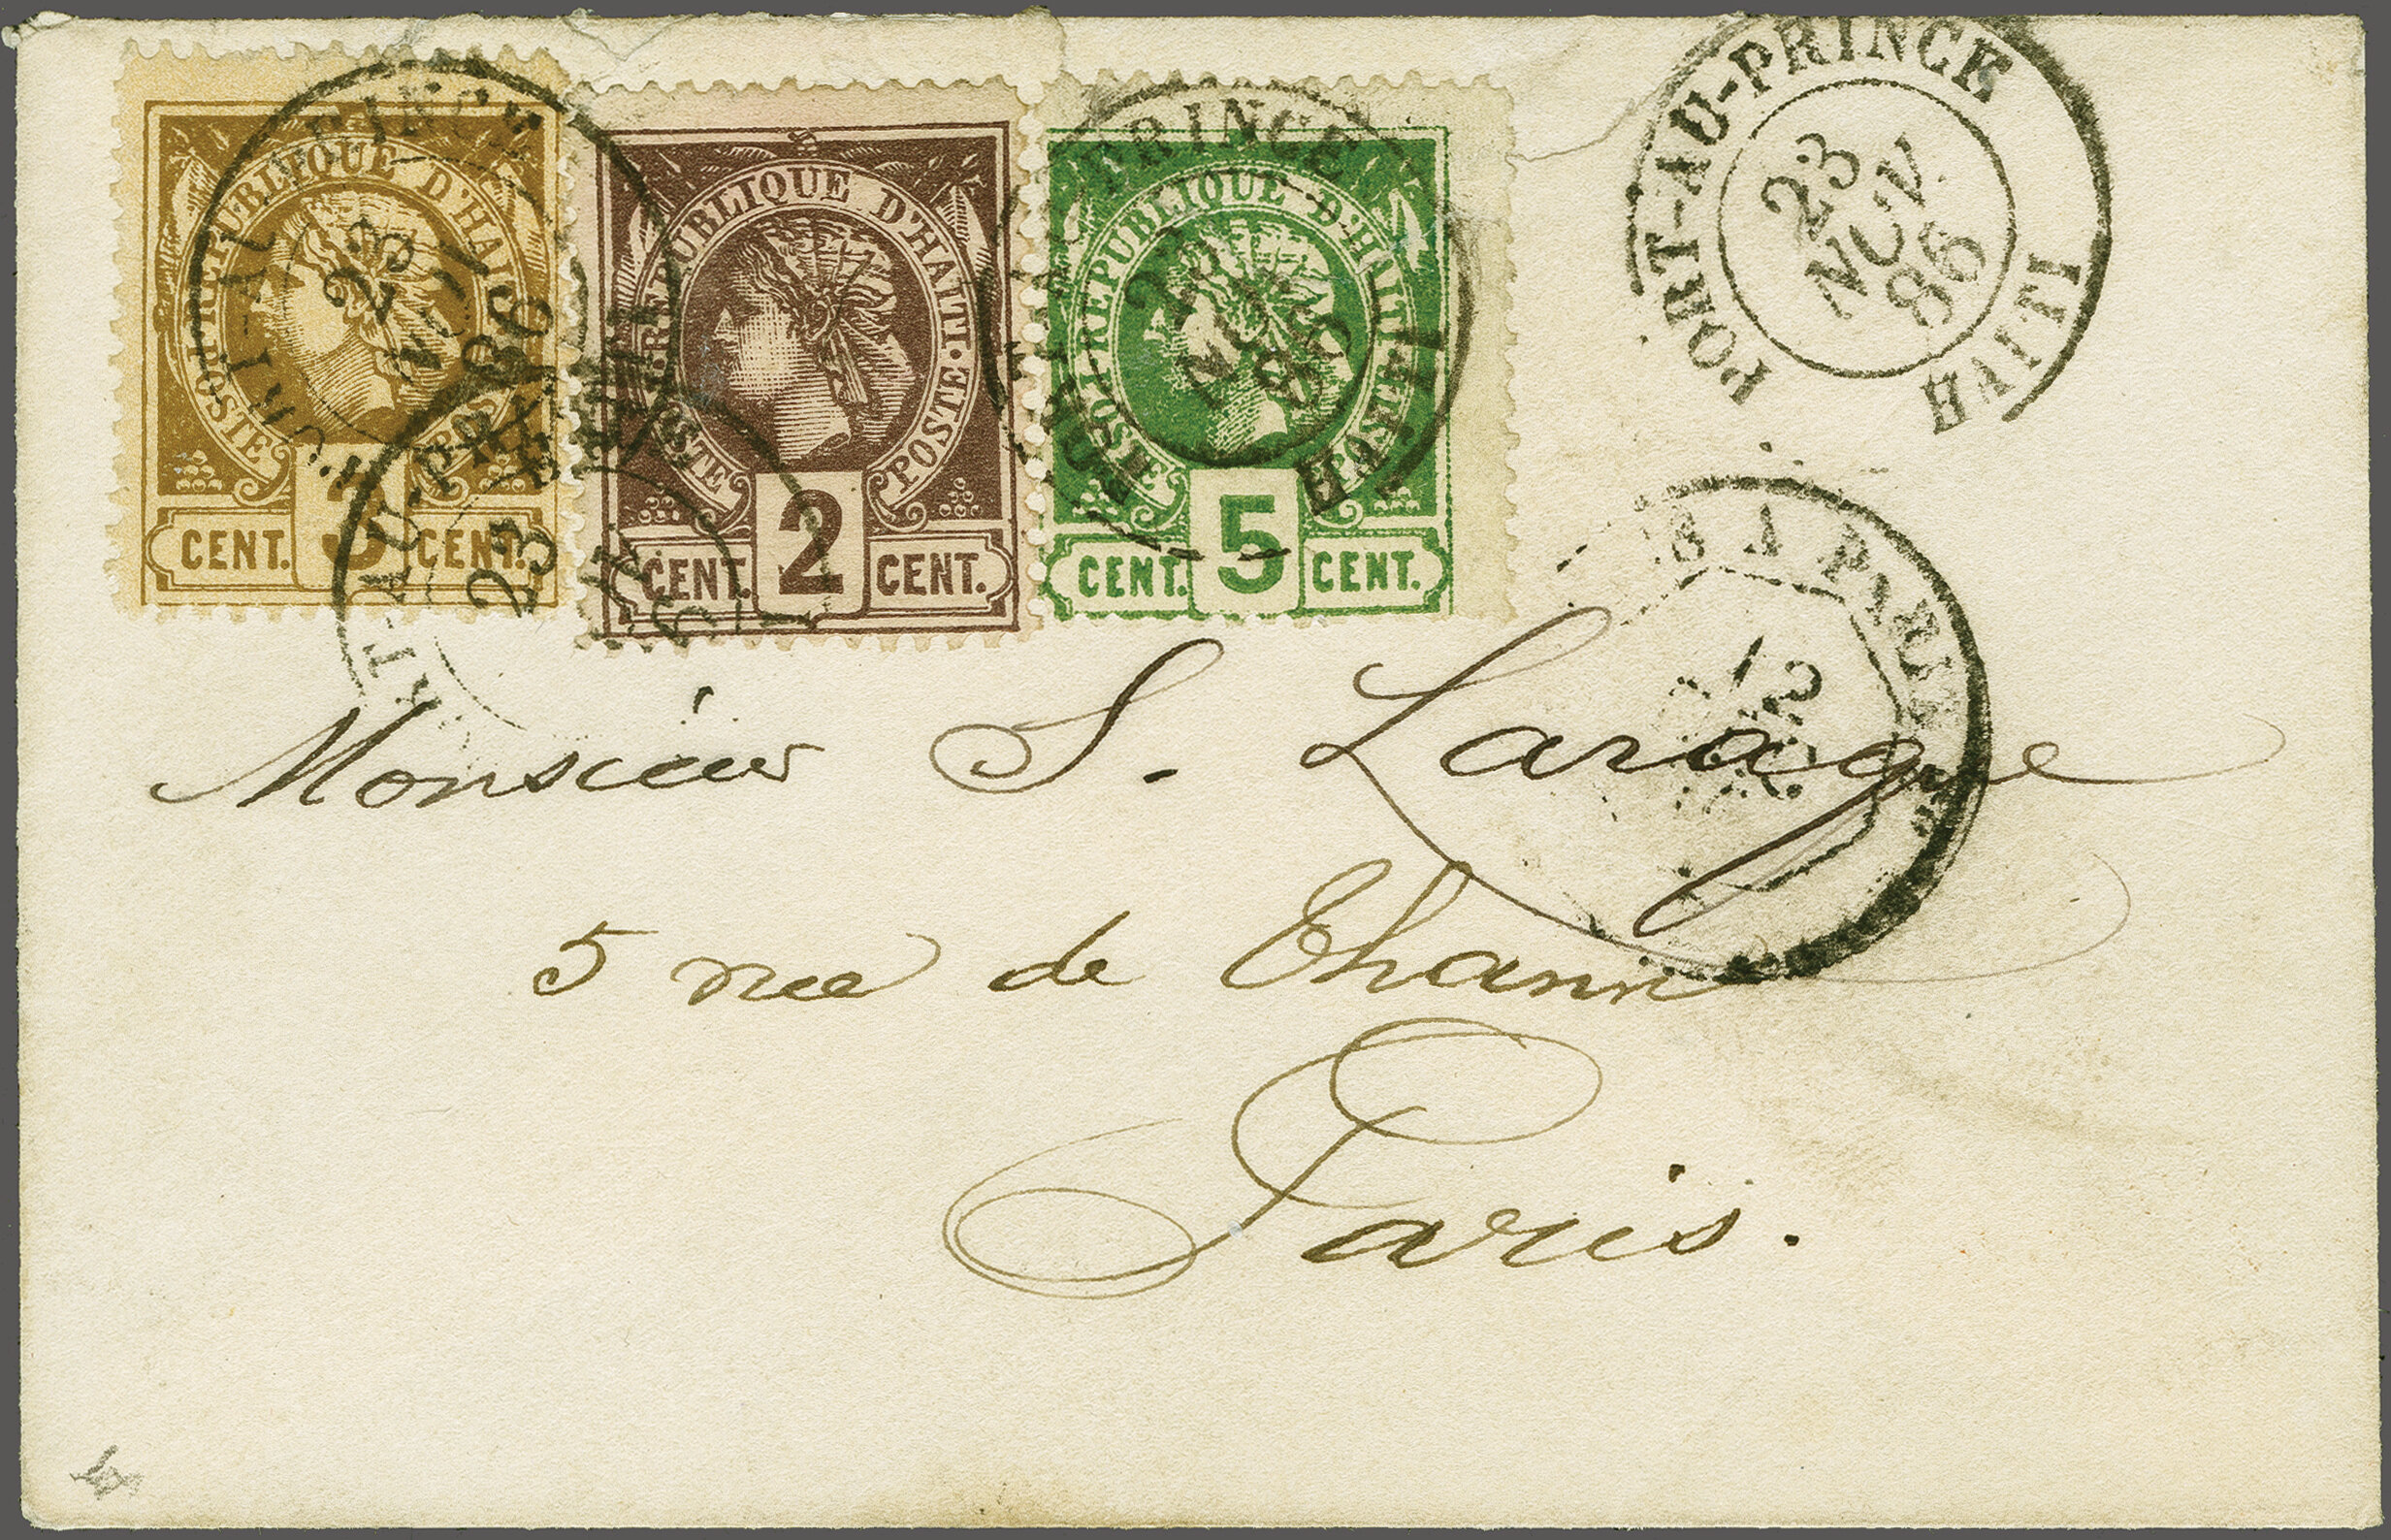 RÉPUBLIQUE D'HAITI
POSTE
CENT. 3 CENT.
RÉPUBLIQUE D'HAITI
POSTE POSTE
CENT. 2 CENT.
RÉPUBLIQUE D'HAITI
POSTE
CENT. 5 CENT.
PRINCE
23
NOV
86
PORT-AU-PRINCE
23
NOV.
86
HAITI
A PARIS
Monsieur S. Larague
5 rue de Thann
Paris.